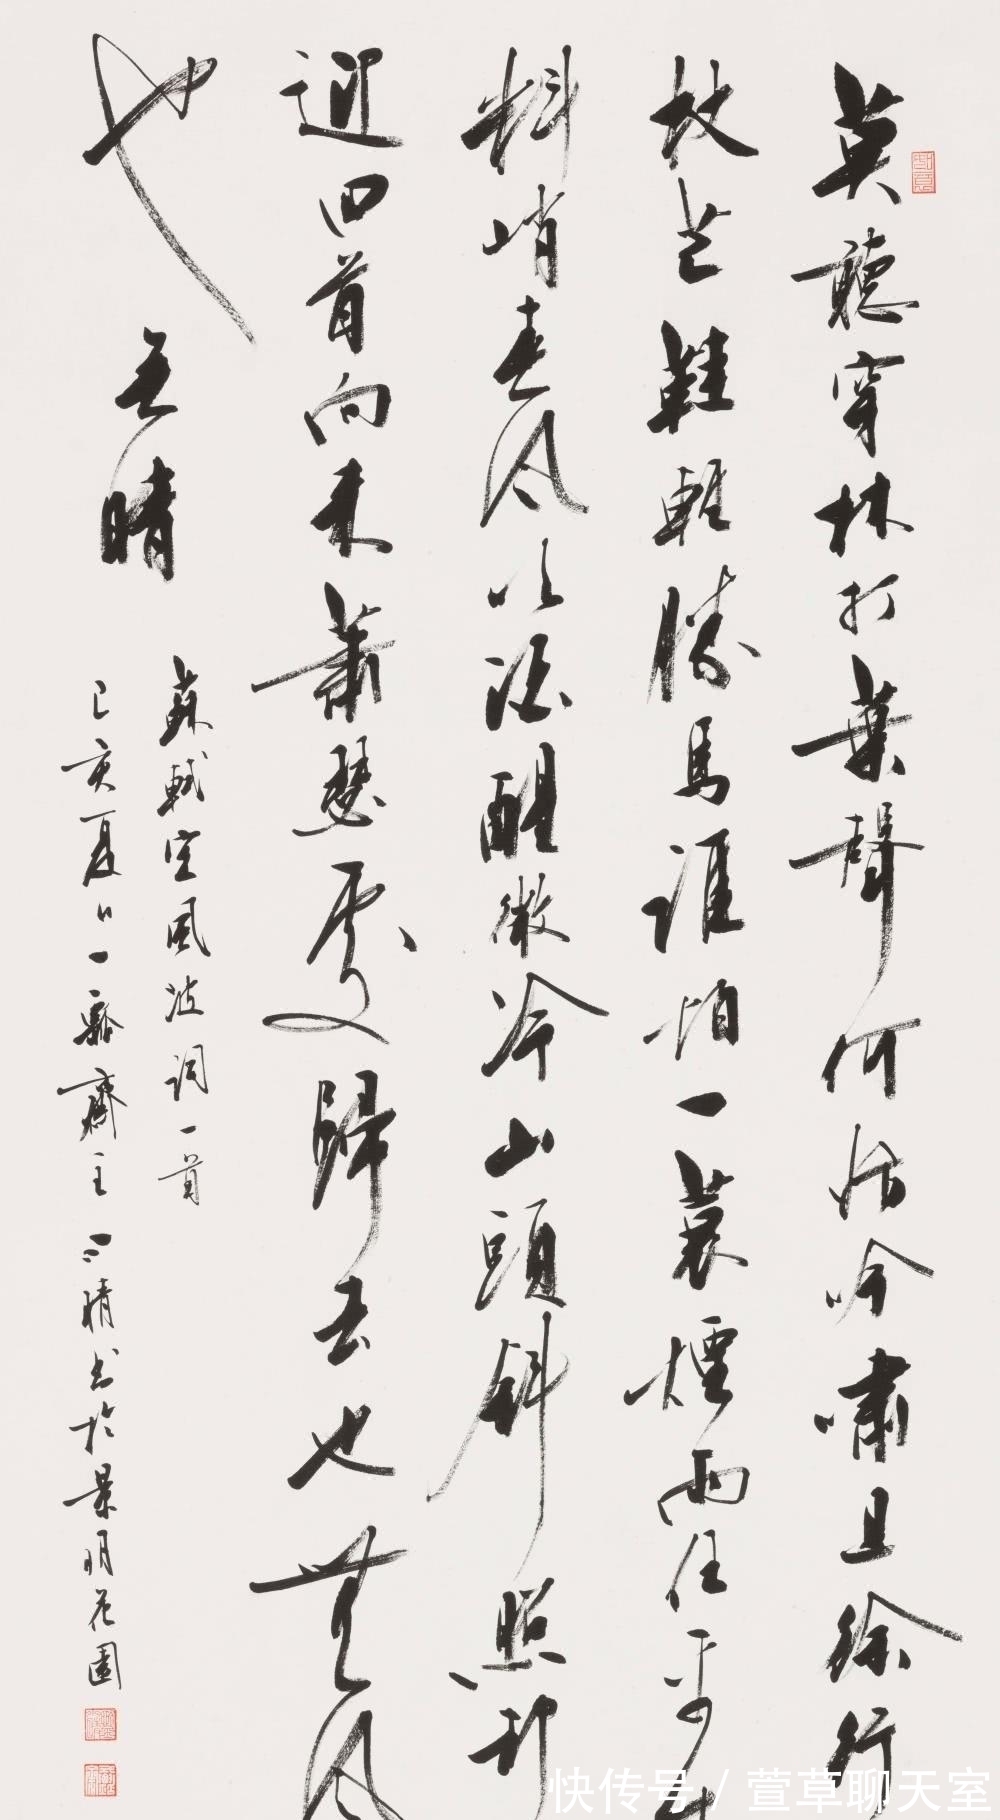 莫聽穿林打葉聲何妨吟嘯且徐行
杖芒鞋輕勝馬誰怕一蓑煙雨任平
料峭春風吹酒醒微冷山頭斜照却
迎回首向來蕭瑟處歸去也無風
也无晴
蘇軾定風波詞一首
己亥夏日一齋主晴書於景明花園
快传号 / 萱草聊天室